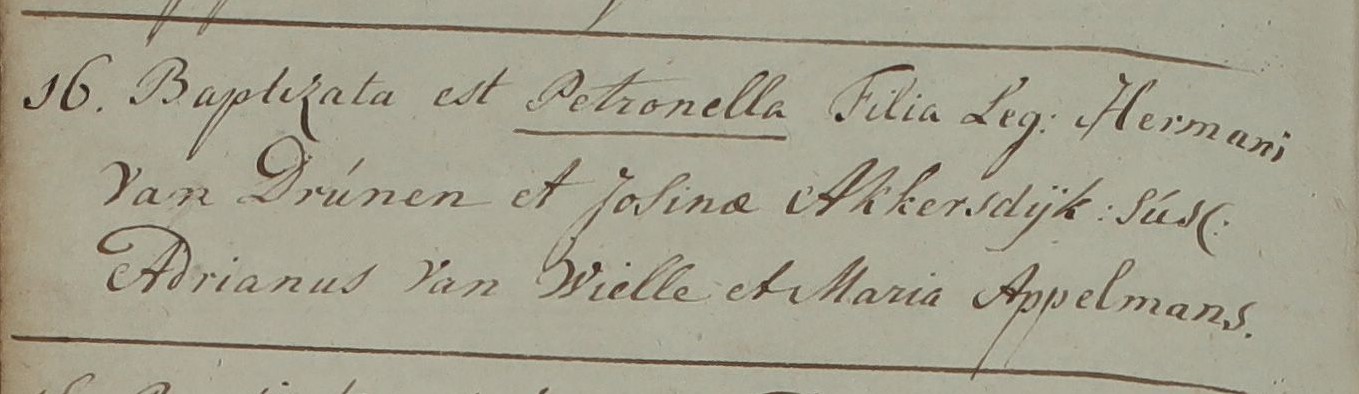 16. Baptizata est Petronella Filia Leg: Hermani
Van Drúnen et Josinæ Akkersdijk: Súsc:
Adrianus Van Wielle et Maria Appelmans.